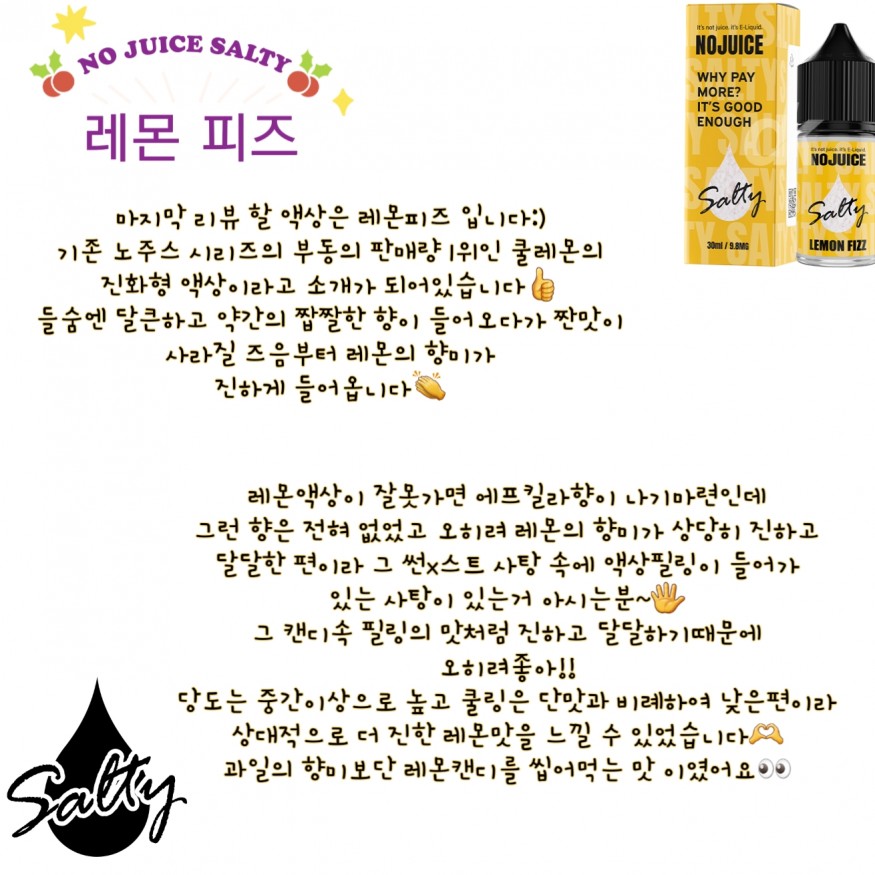 NO JUICE SALTY
레몬 피즈
It's not juice. It's E-Liquid.
NOJUICE
WHY PAY
MORE?
IT'S GOOD
ENOUGH
Salty
30ml / 9.8MG
It's not juice. It's E-Liquid.
NOJUICE
Salty
LEMON FIZZ
마지막 리뷰 할 액상은 레몬피즈 입니다:)
기존 노주스 시리즈의 부동의 판매량 1위인 쿨레몬의
진화형 액상이라고 소개가 되어있습니다👍
들숨엔 달큰하고 약간의 짭짤한 향이 들어오다가 짠맛이
사라질 즈음부터 레몬의 향미가
진하게 들어옵니다👏
레몬액상이 잘못가면 에프킬라향이 나기마련인데
그런 향은 전혀 없었고 오히려 레몬의 향미가 상당히 진하고
달달한 편이라 그 썬x스트 사탕 속에 액상필링이 들어가
있는 사탕이 있는거 아시는분~👋
그 캔디속 필링의 맛처럼 진하고 달달하기때문에
오히려좋아!!
당도는 중간이상으로 높고 쿨링은 단맛과 비례하여 낮은편이라
상대적으로 더 진한 레몬맛을 느낄 수 있었습니다🫶
과일의 향미보단 레몬캔디를 씹어먹는 맛 이였어요👀
Salty